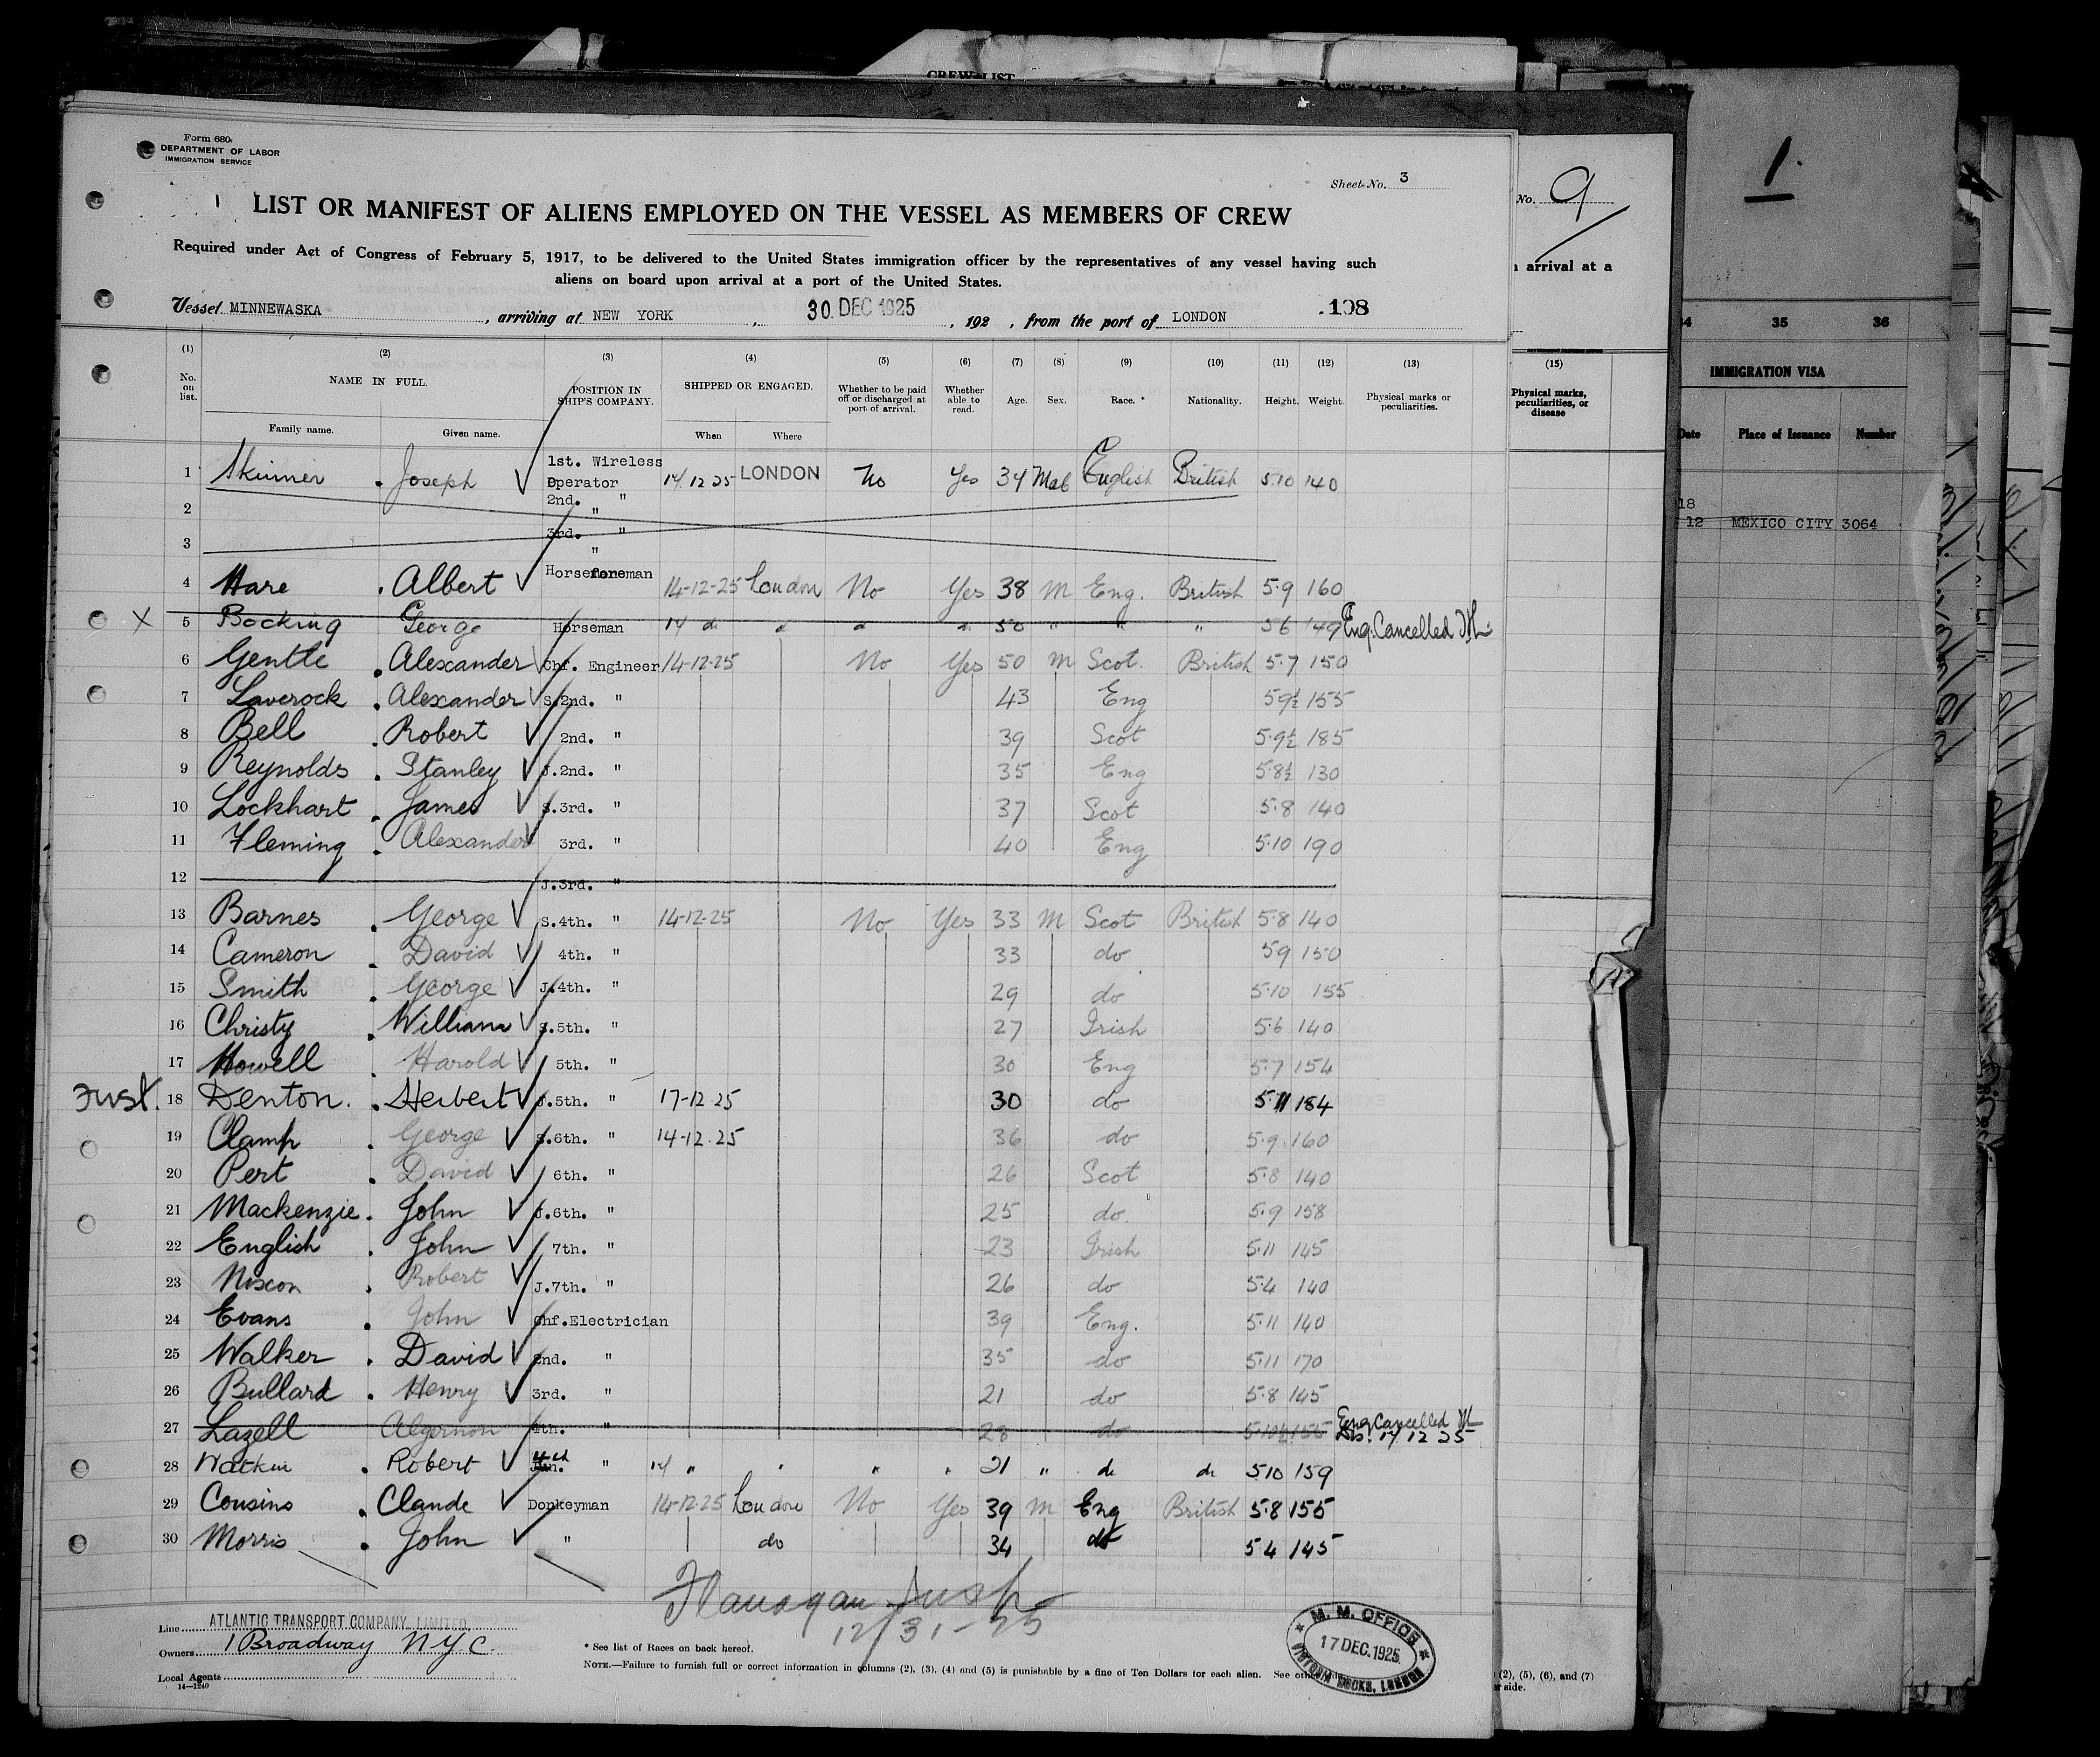 CREW LIST
Form 680
DEPARTMENT OF LABOR
IMMIGRATION SERVICE
Sheet No. 3
1 LIST OR MANIFEST OF ALIENS EMPLOYED ON THE VESSEL AS MEMBERS OF CREW
Required under Act of Congress of February 5, 1917, to be delivered to the United States immigration officer by the representatives of any vessel having such
aliens on board upon arrival at a port of the United States.
Vessel MINNEWASKA, arriving at NEW YORK, 30 DEC 1925, 192 , from the port of LONDON .108
(1) (2) (3) (4) (5) (6) (7) (8) (9) (10) (11) (12) (13)
No. on list. NAME IN FULL. POSITION IN SHIP'S COMPANY. SHIPPED OR ENGAGED. Whether to be paid off or discharged at port of arrival. Whether able to read. Age. Sex. Race. * Nationality. Height. Weight. Physical marks or peculiarities.
Family name. Given name. When Where
1 Skinner Joseph 1st. Wireless Operator 14 12 25 LONDON No Yes 34 Male English British 5 10 140
2 2nd. " "
3 3rd. " "
4 Hare Albert Horseforeman 14-12-25 London No Yes 38 M Eng. British 5.9 160
X 5 Bocking George Horseman 14 do " " " 50 " " " 5 6 149 Eng. Cancelled
6 Gentle Alexander Chf. Engineer 14-12-25 No Yes 50 M Scot. British 5.7 150
7 Laverock Alexander S.2nd. " 43 Eng 5 9½ 155
8 Bell Robert 2nd. " 39 Scot 5.9½ 185
9 Reynolds Stanley J.2nd. " 35 Eng 5.8½ 130
10 Lockhart James S.3rd. " 37 Scot 5.8 140
11 Fleming Alexander 3rd. " 40 Eng 5.10 190
12 J.3rd. "
13 Barnes George S.4th. " 14-12-25 No Yes 33 M Scot British 5.8 140
14 Cameron David 4th. " 33 do 5 9 150
15 Smith George J.4th. " 29 do 5.10 155
16 Christy William S.5th. " 27 Irish 5.6 140
17 Howell Harold 5th. " 30 Eng 5.7 154
First. 18 Denton. Herbert J.5th. " 17-12 25 30 do 5.11 184
19 Clamp George S.6th. " 14-12.25 36 do 5.9 160
20 Pert David 6th. " 26 Scot 5.8 140
21 Mackenzie John J.6th. " 25 do 5.9 158
22 English John 7th. " 23 Irish 5.11 145
23 Nixon Robert J.7th. " 26 do 5.4 140
24 Evans John Chf.Electrician 39 Eng. 5.11 140
25 Walker David 2nd. " 35 do 5.11 170
26 Bullard Henry 3rd. " 21 do 5.8 145
27 Lazell Algernon 4th. " 28 do 5.10½ 155 Eng Cancelled 17 12 25
28 Watkin Robert 4th " 14 " " " " 21 " do do 5 10 159
29 Cousins Claude Donkeyman 14-12-25 London No Yes 39 M Eng British 5.8 155
30 Morris John " do 34 do 5 4 145
Flanagan
12/31-25
Line ATLANTIC TRANSPORT COMPANY, LIMITED
Owners 1 Broadway N.Y.C.
Local Agents
14—1240
* See list of Races on back hereof.
NOTE.—Failure to furnish full or correct information in columns (2), (3), (4) and (5) is punishable by a fine of Ten Dollars for each alien. See other
M. M. OFFICE
17 DEC. 1925
VICTORIA DOCKS, LONDON
No. 9
n arrival at a
(15)
Physical marks, peculiarities, or disease
(2), (5), (6), and (7)
r side.
1
34 35 36
IMMIGRATION VISA
Date Place of Issuance Number
18
12 MEXICO CITY 3064